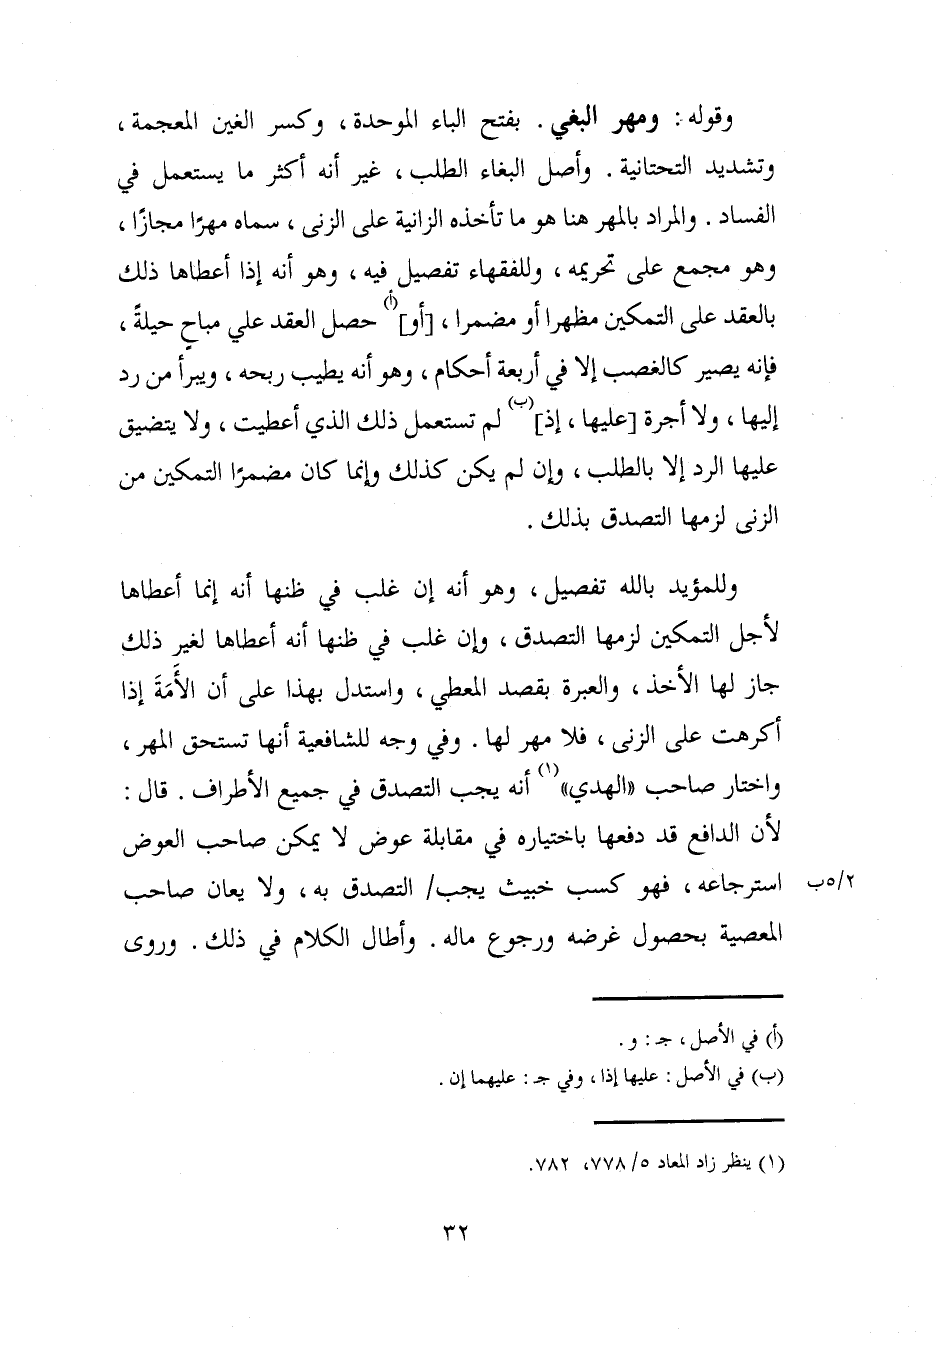 وقوله: ومهر البغي. بفتح الباء الموحدة، وكسر الغين المعجمة،
وتشديد التحتانية. وأصل البغاء الطلب، غير أنه أكثر ما يستعمل في
الفساد. والمراد بالمهر هنا هو ما تأخذه الزانية على الزنى، سماه مهرًا مجازًا،
وهو مجمع على تحريمه، وللفقهاء تفصيل فيه، وهو أنه إذا أعطاها ذلك
بالعقد على التمكين مظهرا أو مضمرا، [أو](أ) حصل العقد علي مباحٍ حيلةً،
فإنه يصير كالغصب إلا في أربعة أحكام، وهو أنه يطيب ربحه، ويبرأ من رد
إليها، ولا أجرة [عليها، إذ](ب) لم تستعمل ذلك الذي أعطيت، ولا يتضيق
عليها الرد إلا بالطلب، وإن لم يكن كذلك وإنما كان مضمرًا التمكين من
الزنى لزمها التصدق بذلك.
وللمؤيد بالله تفصيل، وهو أنه إن غلب في ظنها أنه إنما أعطاها
لأجل التمكين لزمها التصدق، وإن غلب في ظنها أنه أعطاها لغير ذلك
جاز لها الأخذ، والعبرة بقصد المعطي، واستدل بهذا على أن الأَمَةَ إذا
أكرهت على الزنى، فلا مهر لها. وفي وجه للشافعية أنها تستحق المهر،
واختار صاحب «الهدي»(١) أنه يجب التصدق في جميع الأطراف. قال:
لأن الدافع قد دفعها باختياره في مقابلة عوض لا يمكن صاحب العوض
استرجاعه، فهو كسب خبيث يجب/ التصدق به، ولا يعان صاحب
٢/٥ب
المعصية بحصول غرضه ورجوع ماله. وأطال الكلام في ذلك. وروى
(أ) في الأصل، جـ: و.
(ب) في الأصل: عليها إذا، وفي جـ: عليهما إن.
(١) ينظر زاد المعاد ٥/ ٧٧٨، ٧٨٢.
٣٢